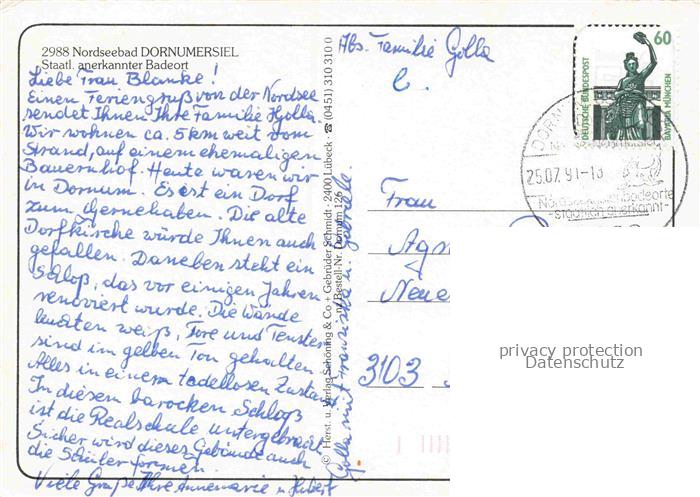 2988 Nordseebad DORNUMERSIEL
Staatl. anerkannter Badeort
Liebe Frau Blanke!
Einen Feriengruß von der Nordsee
sendet Ihnen Ihre Familie Golla.
Wir wohnen ca. 5 km weit vom
Strand, auf einem ehemaligen
Bauernhof. Heute waren wir
in Dornum. Es ist ein Dorf
zum Gernehaben. Die alte
Dorfkirche würde Ihnen auch
gefallen. Daneben steht ein
Schloß, das vor einigen Jahren
renoviert wurde. Die Wände
leuchten weiß, Tore und Fenster
sind im gelben Ton gehalten.
Alles in einem tadellosen Zustand
In diesem barocken Schloß
ist die Realschule untergebracht.
Sicher wird dieses Gebäude auch
die Schüler formen.
Viele Grüße Ihre Annemarie u. Hubert
Golla mit Franziska u. Mareile.
© Herst. u. Verlag Schöning & Co + Gebrüder Schmidt · 2400 Lübeck · ☎ (0451) 310 310 0
Bestell-Nr. Dornum 126
Abs. Familie Golla
60
DEUTSCHE BUNDESPOST
BAVARIA MÜNCHEN
25.07.91-18
Nordseebadeorte
-staatlich anerkannt-
Frau
Agn
Neue
3103
privacy protection
Datenschutz